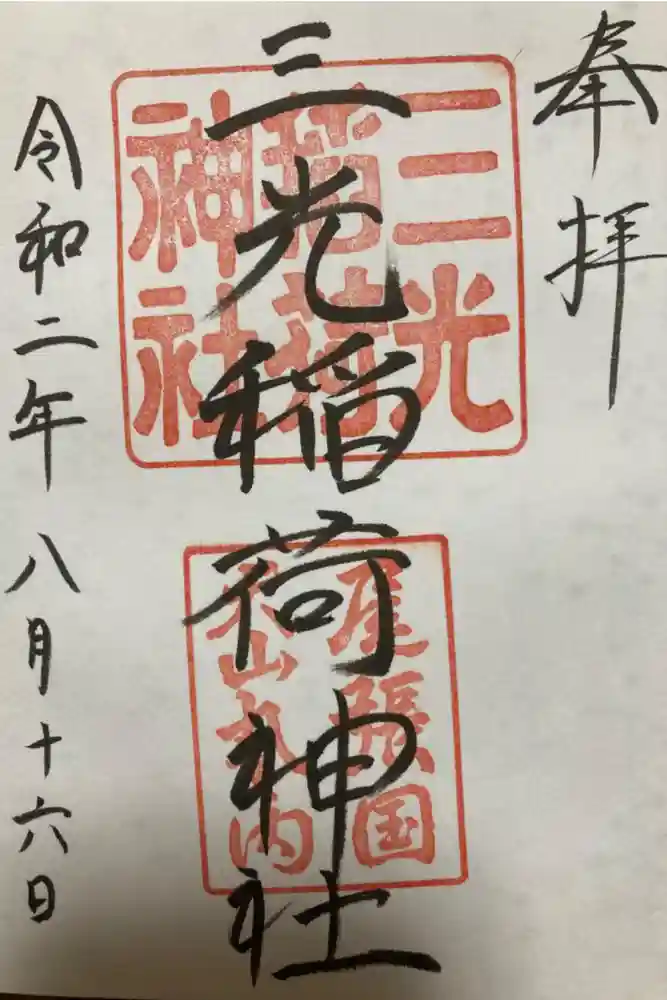 奉拝
三光稲荷神社
三光
稲荷
神社
尾張国
犬山丸の内
令和二年八月十六日